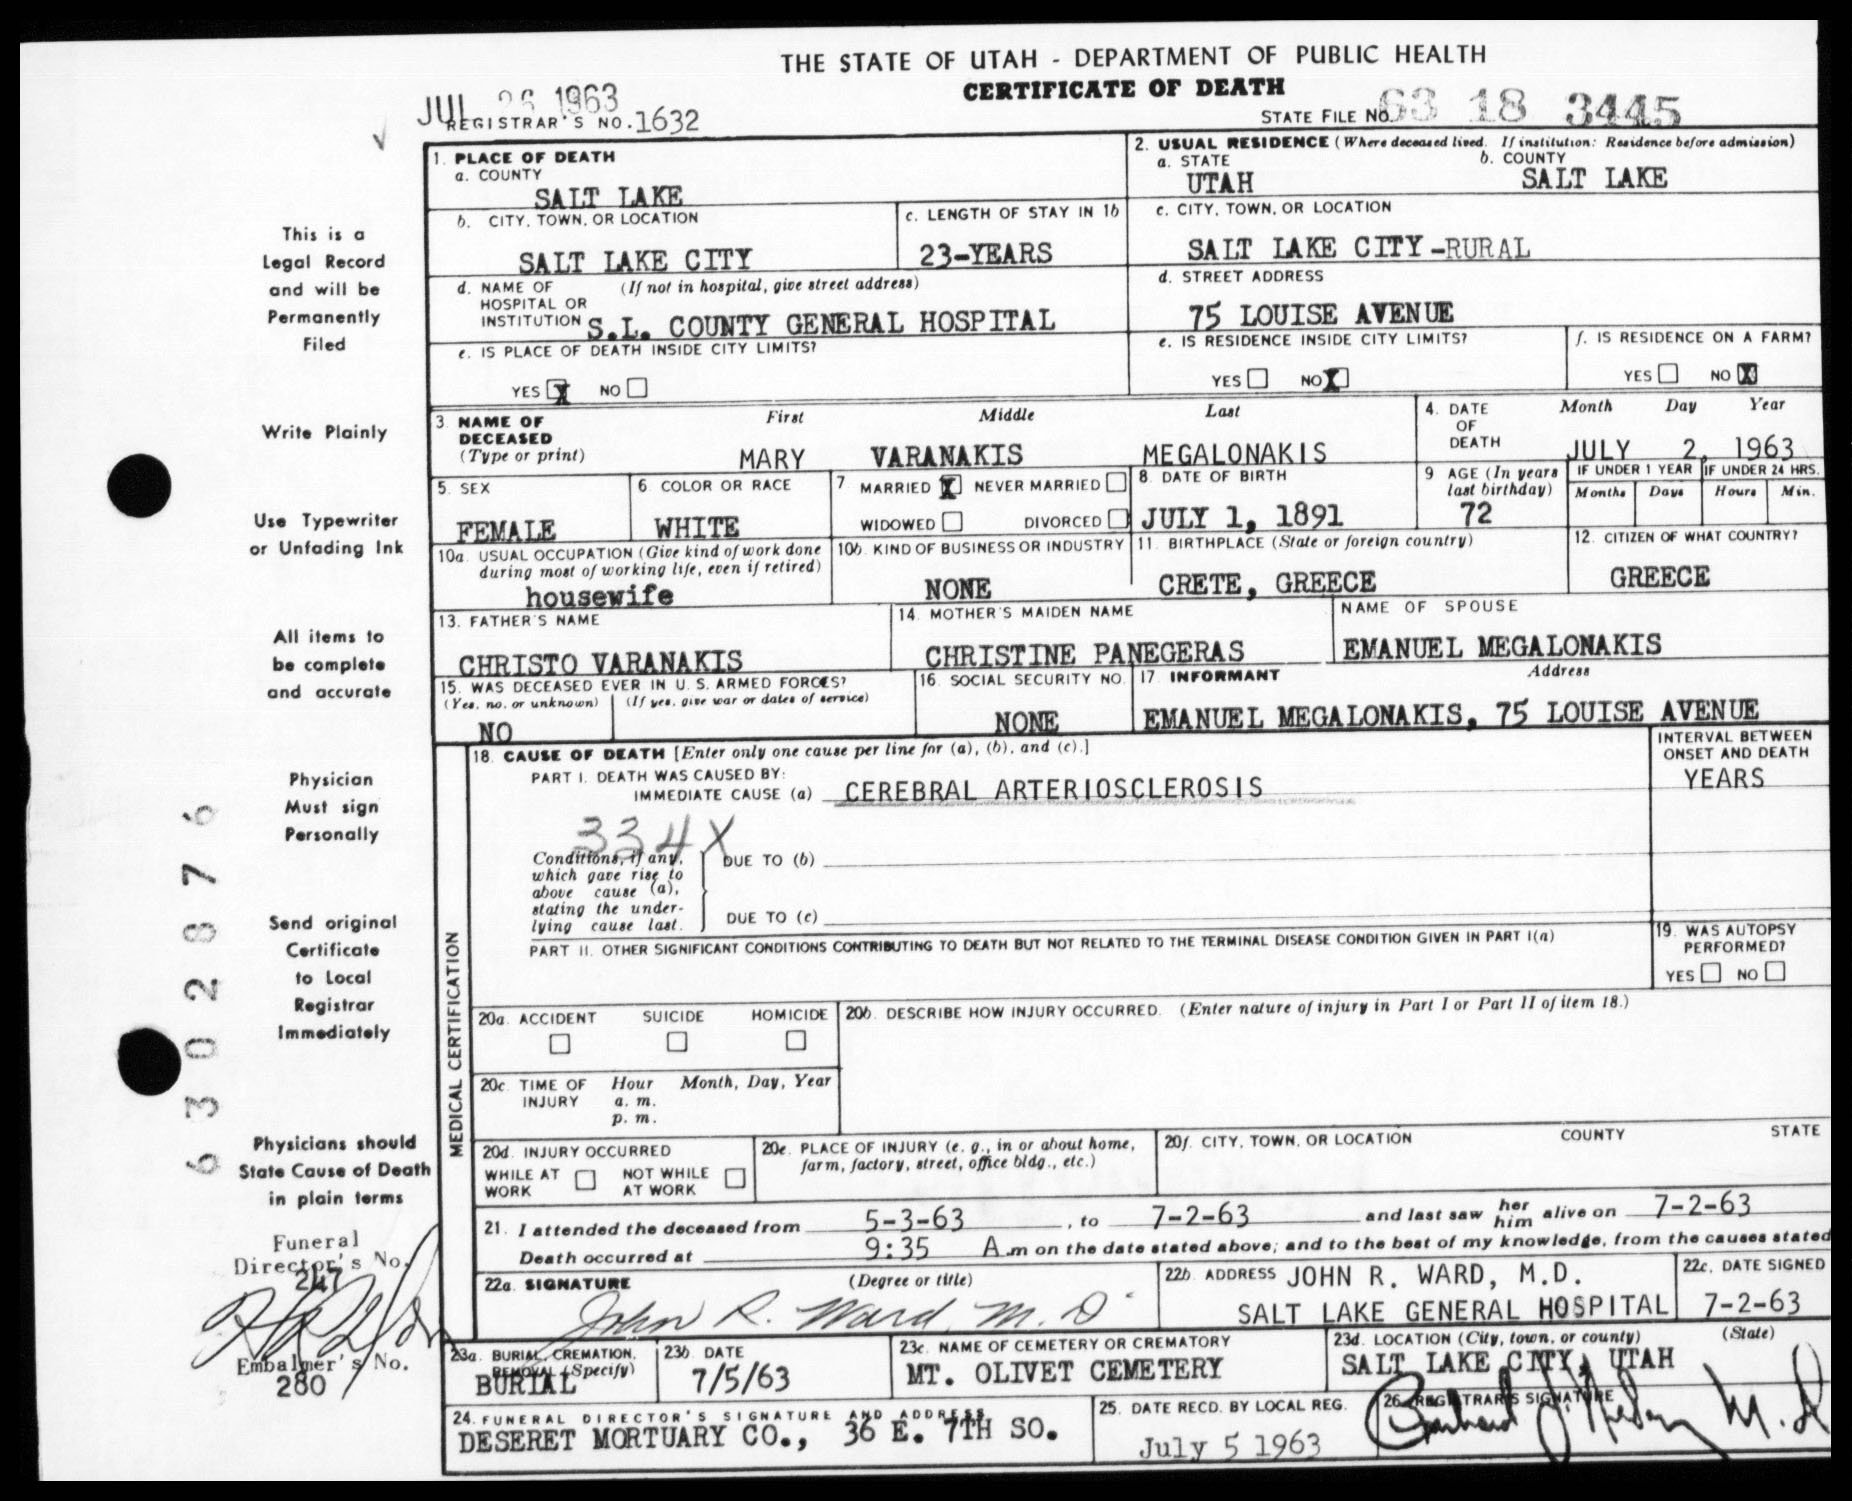 THE STATE OF UTAH - DEPARTMENT OF PUBLIC HEALTH
CERTIFICATE OF DEATH
JUL 26 1963
REGISTRAR'S NO. 1632
STATE FILE NO. 63 18 3445
1. PLACE OF DEATH
a. COUNTY
SALT LAKE
2. USUAL RESIDENCE (Where deceased lived. If institution: Residence before admission)
a. STATE b. COUNTY
UTAH SALT LAKE
b. CITY, TOWN, OR LOCATION
SALT LAKE CITY
c. LENGTH OF STAY IN 1b
23-YEARS
c. CITY, TOWN, OR LOCATION
SALT LAKE CITY-RURAL
d. NAME OF (If not in hospital, give street address)
HOSPITAL OR
INSTITUTION S.L. COUNTY GENERAL HOSPITAL
d. STREET ADDRESS
75 LOUISE AVENUE
e. IS PLACE OF DEATH INSIDE CITY LIMITS?
YES X NO
e. IS RESIDENCE INSIDE CITY LIMITS?
YES NO X
f. IS RESIDENCE ON A FARM?
YES NO X
3. NAME OF DECEASED (Type or print)
First Middle Last
MARY VARANAKIS MEGALONAKIS
4. DATE OF DEATH
Month Day Year
JULY 2, 1963
5. SEX
FEMALE
6. COLOR OR RACE
WHITE
7. MARRIED X NEVER MARRIED
WIDOWED DIVORCED
8. DATE OF BIRTH
JULY 1, 1891
9. AGE (In years last birthday)
72
IF UNDER 1 YEAR IF UNDER 24 HRS.
Months Days Hours Min.
10a. USUAL OCCUPATION (Give kind of work done
during most of working life, even if retired)
housewife
10b. KIND OF BUSINESS OR INDUSTRY
NONE
11. BIRTHPLACE (State or foreign country)
CRETE, GREECE
12. CITIZEN OF WHAT COUNTRY?
GREECE
13. FATHER'S NAME
CHRISTO VARANAKIS
14. MOTHER'S MAIDEN NAME
CHRISTINE PANEGERAS
NAME OF SPOUSE
EMANUEL MEGALONAKIS
15. WAS DECEASED EVER IN U. S. ARMED FORCES?
(Yes, no, or unknown) (If yes, give war or dates of service)
NO
16. SOCIAL SECURITY NO.
NONE
17. INFORMANT Address
EMANUEL MEGALONAKIS, 75 LOUISE AVENUE
MEDICAL CERTIFICATION
18. CAUSE OF DEATH [Enter only one cause per line for (a), (b), and (c).]
PART I. DEATH WAS CAUSED BY:
IMMEDIATE CAUSE (a) CEREBRAL ARTERIOSCLEROSIS
INTERVAL BETWEEN
ONSET AND DEATH
YEARS
334X
Conditions, if any,
which gave rise to
above cause (a),
stating the under-
lying cause last.
DUE TO (b)
DUE TO (c)
PART II. OTHER SIGNIFICANT CONDITIONS CONTRIBUTING TO DEATH BUT NOT RELATED TO THE TERMINAL DISEASE CONDITION GIVEN IN PART I(a)
19. WAS AUTOPSY
PERFORMED?
YES NO
20a. ACCIDENT SUICIDE HOMICIDE
20b. DESCRIBE HOW INJURY OCCURRED. (Enter nature of injury in Part I or Part II of item 18.)
20c. TIME OF INJURY
Hour Month, Day, Year
a. m.
p. m.
20d. INJURY OCCURRED
WHILE AT WORK NOT WHILE AT WORK
20e. PLACE OF INJURY (e. g., in or about home,
farm, factory, street, office bldg., etc.)
20f. CITY, TOWN, OR LOCATION COUNTY STATE
21. I attended the deceased from 5-3-63, to 7-2-63 and last saw her him alive on 7-2-63
Death occurred at 9:35 A.m on the date stated above; and to the best of my knowledge, from the causes stated
22a. SIGNATURE (Degree or title)
John R. Ward, M.D.
22b. ADDRESS JOHN R. WARD, M.D.
SALT LAKE GENERAL HOSPITAL
22c. DATE SIGNED
7-2-63
23a. BURIAL, CREMATION,
REMOVAL (Specify)
BURIAL
23b. DATE
7/5/63
23c. NAME OF CEMETERY OR CREMATORY
MT. OLIVET CEMETERY
23d. LOCATION (City, town, or county) (State)
SALT LAKE CITY, UTAH
24. FUNERAL DIRECTOR'S SIGNATURE AND ADDRESS
DESERET MORTUARY CO., 36 E. 7TH SO.
25. DATE RECD. BY LOCAL REG.
July 5 1963
26. REGISTRAR'S SIGNATURE
This is a
Legal Record
and will be
Permanently
Filed
Write Plainly
Use Typewriter
or Unfading Ink
All items to
be complete
and accurate
Physician
Must sign
Personally
Send original
Certificate
to Local
Registrar
Immediately
Physicians should
State Cause of Death
in plain terms
Funeral
Director's No.
247
Embalmer's No.
280
6302876